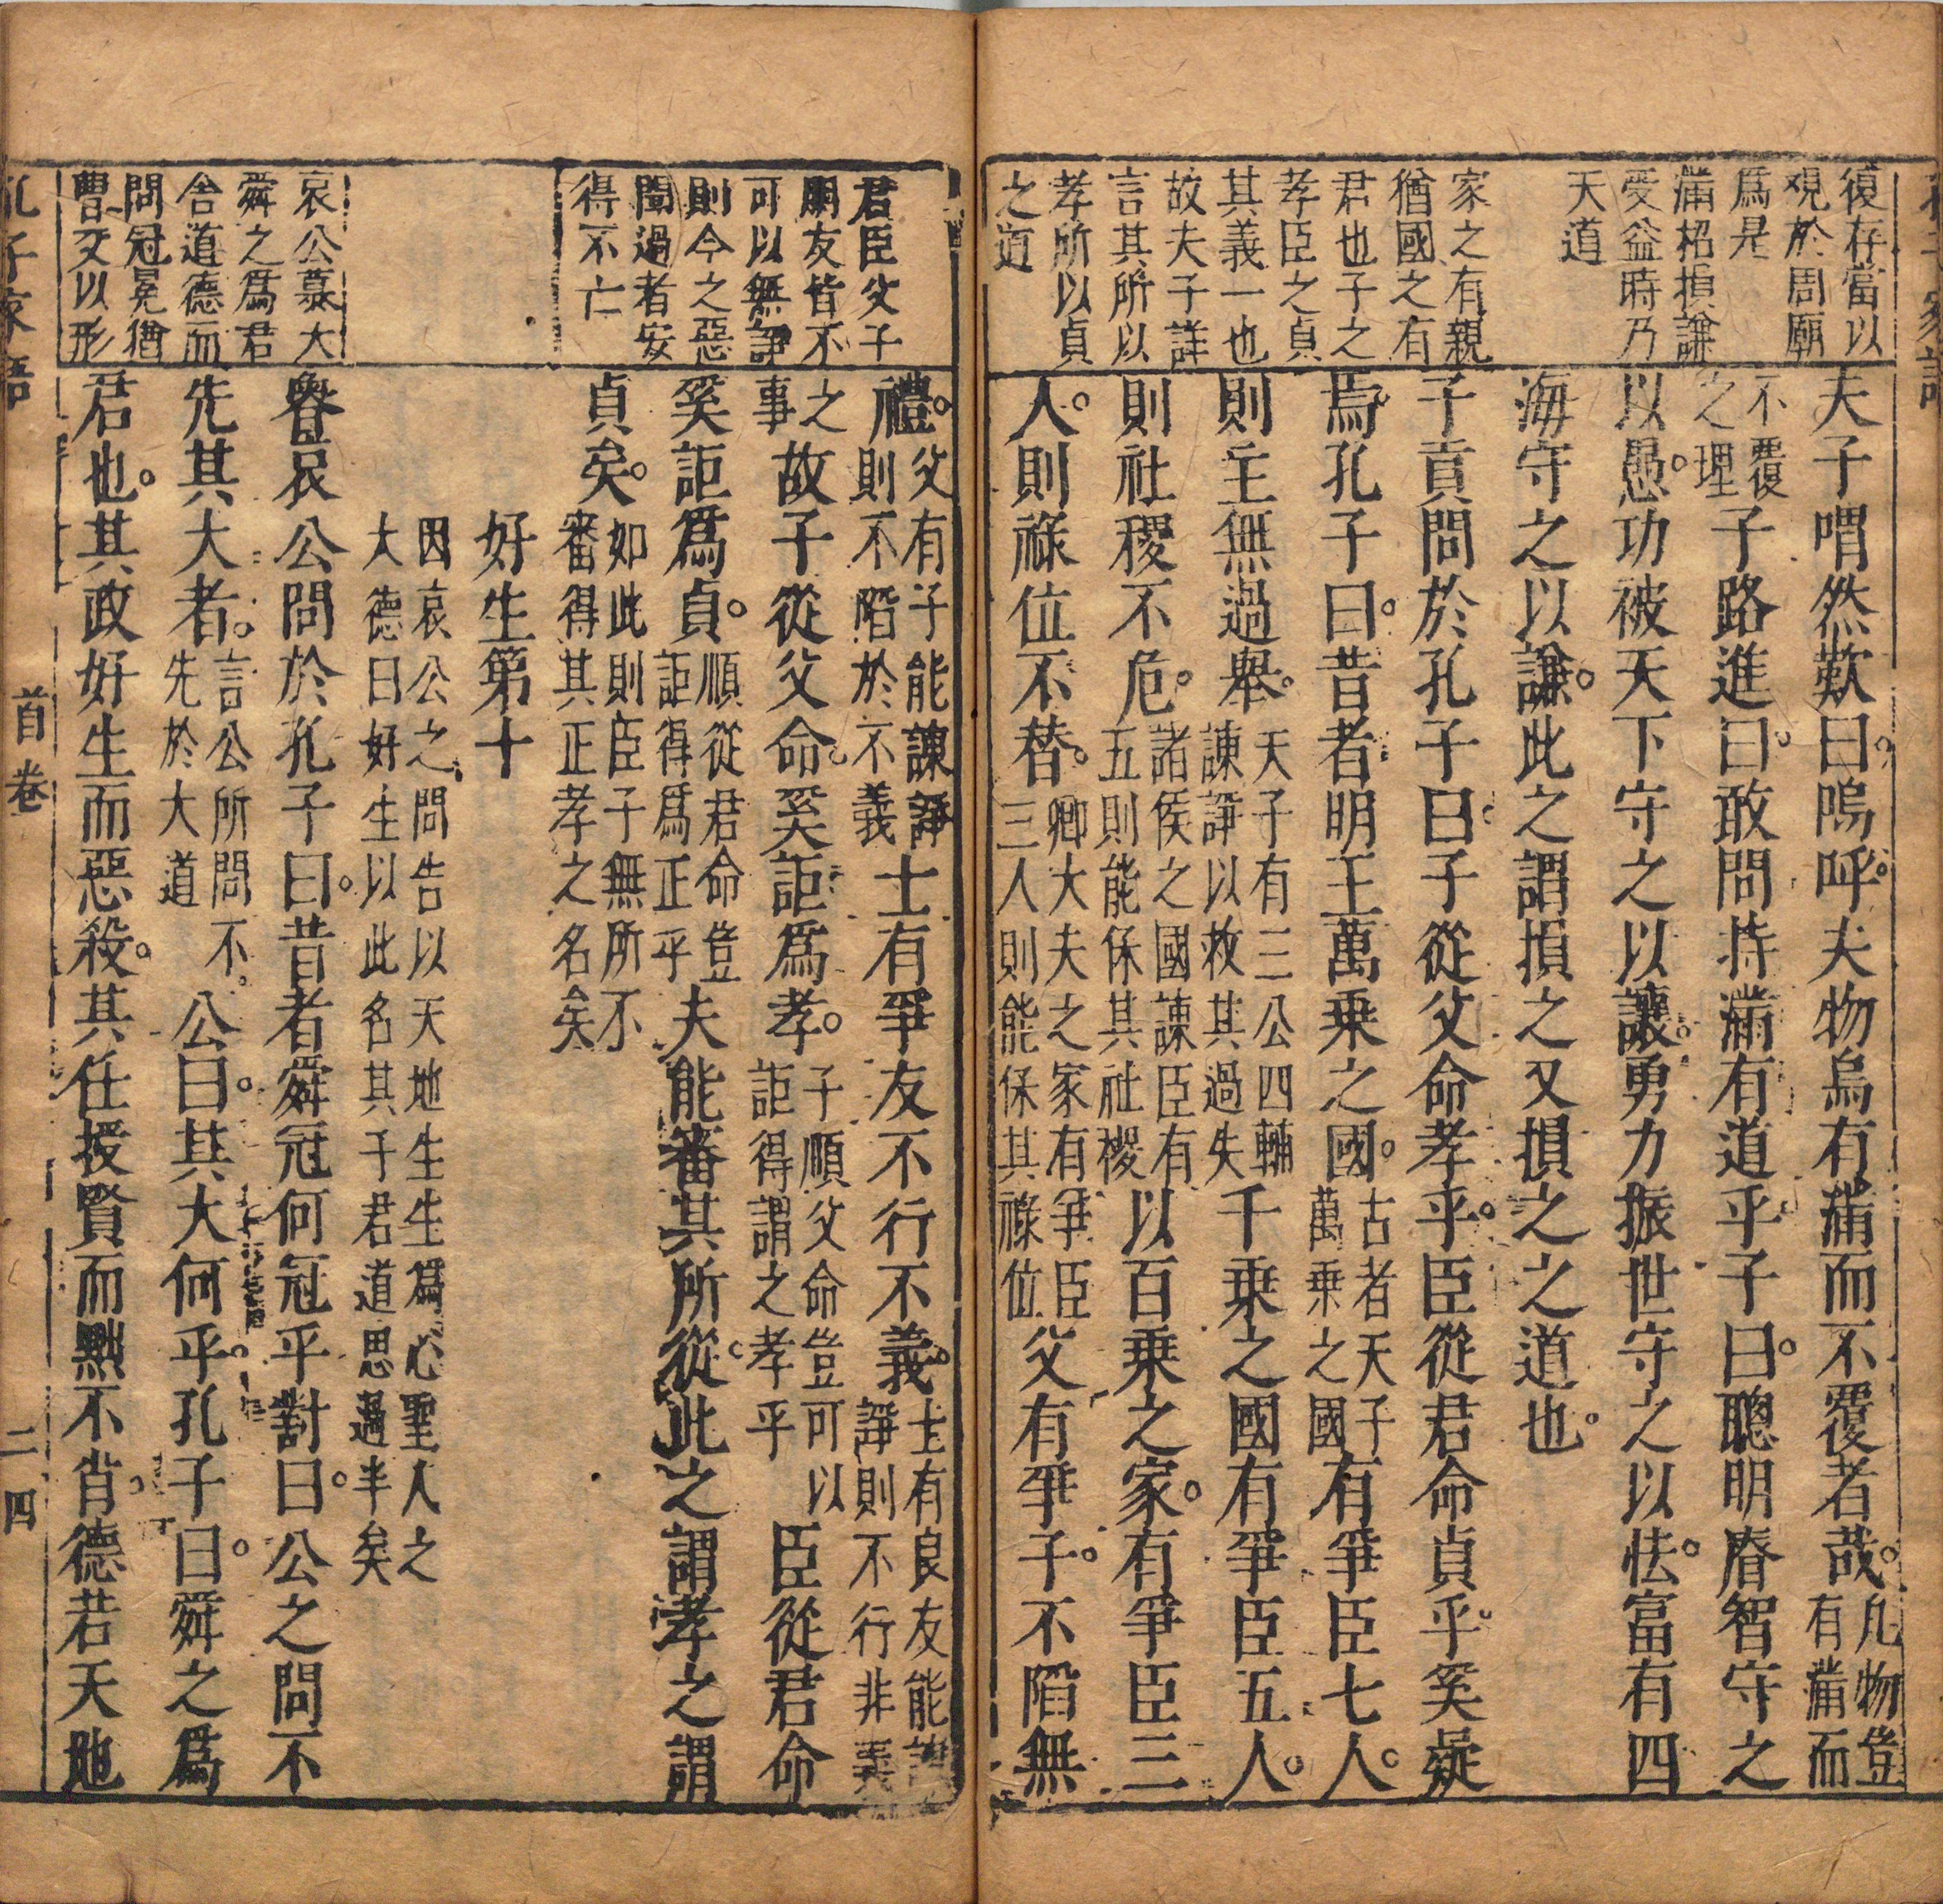 復存當以
觀於周廟
爲是
滿招損謙
受益時乃
天道
家之有親
猶國之有
君也子之
孝臣之貞
其義一也
故夫子詳
言其所以
孝所以貞
之道
夫子喟然歎曰嗚呼夫物烏有滿而不覆者哉凡物豈有滿而
不覆之理子路進曰敢問持滿有道乎子曰聰明睿智守之
以愚功被天下守之以讓勇力振世守之以怯富有四
海守之以謙此之謂損之又損之之道也
子貢問於孔子曰子從父命孝乎臣從君命貞乎奚疑
焉孔子曰昔者明王萬乘之國古者天子萬乘之國有爭臣七人
則主無過舉天子有三公四輔諫諍以救其過失千乘之國有爭臣五人
則社稷不危諸侯之國諫臣有五則能保其社稷以百乘之家有爭臣三
人則祿位不替卿大夫之家有爭臣三人則能保其祿位父有爭子不陷無
君臣父子
朋友皆不
可以無諍
則今之惡
聞過者安
得不亡
哀公慕大
舜之爲君
舍道德而
問冠冕猶
曹交以形
禮父有子能諫諍則不陷於不義士有爭友不行不義士有良友能諫諍則不行非義
之事故子從父命奚詎爲孝子順父命豈可以詎得謂之孝乎臣從君命
奚詎爲貞順從君命豈詎得爲正乎夫能審其所從此之謂孝之謂
貞矣如此則臣子無所不審得其正孝之名矣
好生第十
因哀公之問告以天地生生爲心聖人之
大德曰好生以此名其于君道思過半矣
魯哀公問於孔子曰昔者舜冠何冠乎對曰公之問不
先其大者言公所問不先於大道公曰其大何乎孔子曰舜之爲
君也其政好生而惡殺其任授賢而黜不肖德若天地
孔子家語
首卷
二四